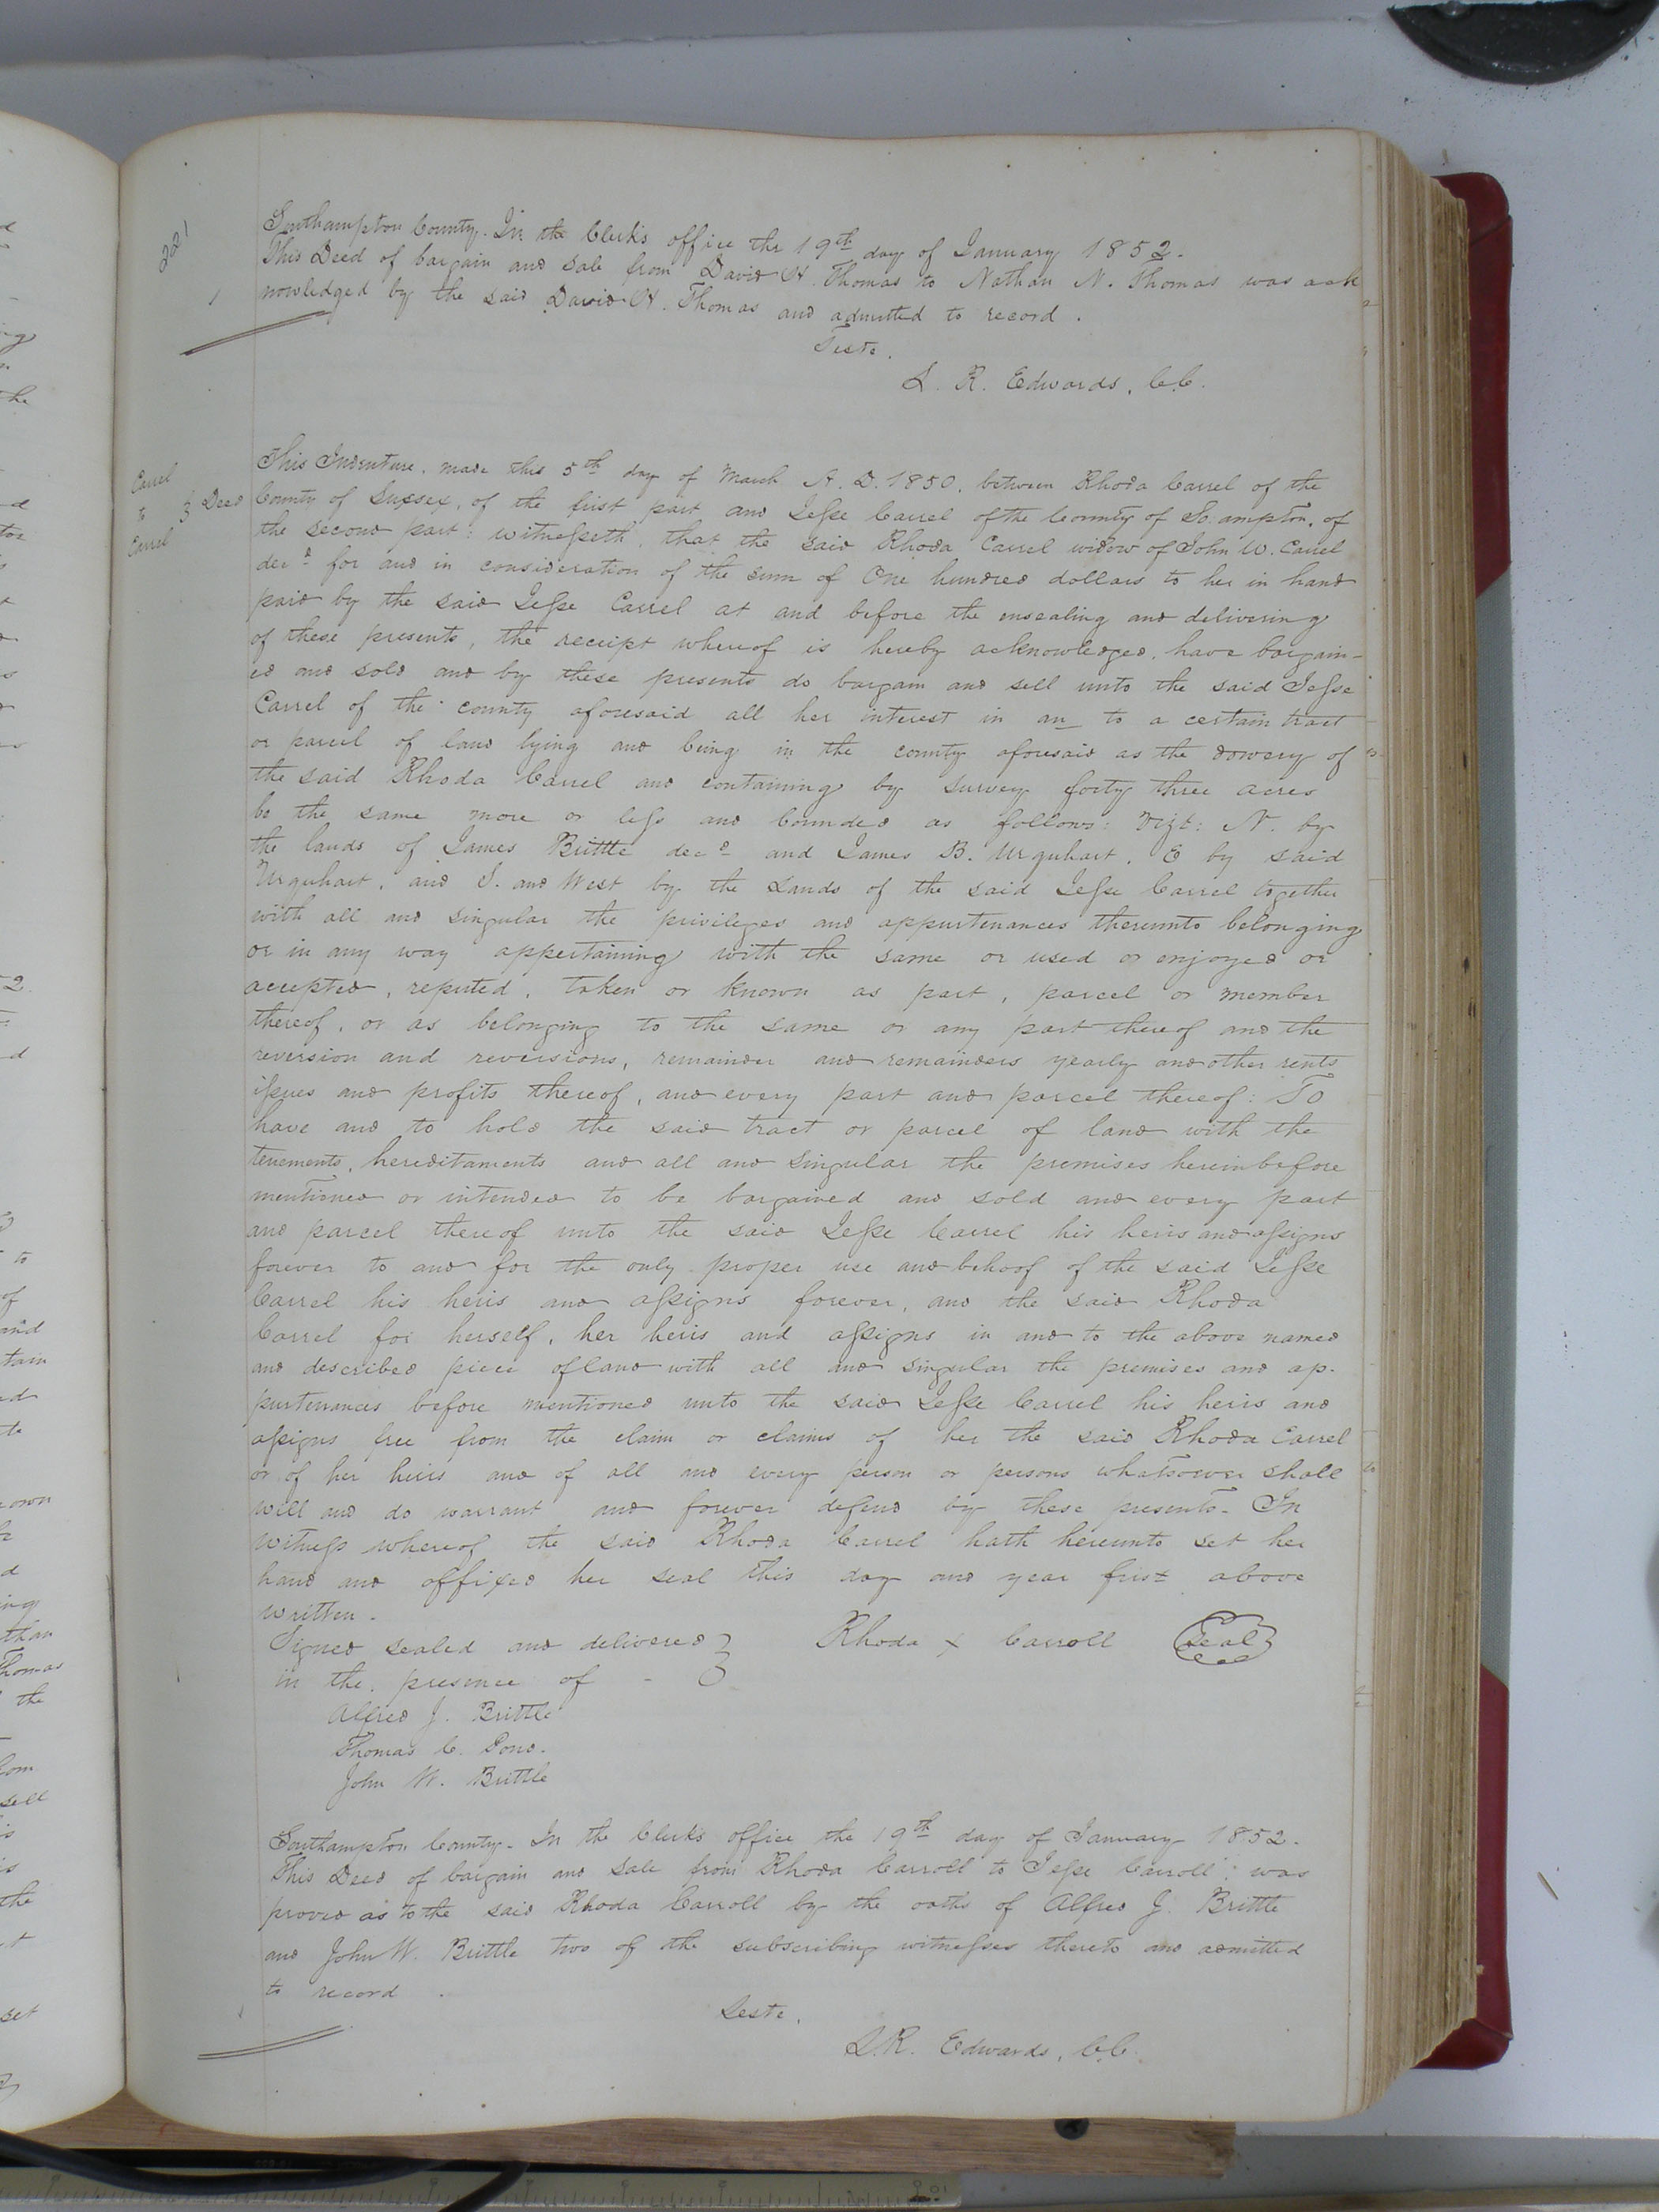 221
Southampton County. In the Clerk's office the 19th day of January 1852.
This Deed of bargain and sale from David H. Thomas to Nathan N. Thomas was ack
nowledged by the said David H. Thomas and admitted to record.
Teste.
L. R. Edwards, C.C.
Carrel
to } Deed
Carrel
This Indenture. made this 5th day of March A. D. 1850, between Rhoda Carrel of the
County of Sussex, of the first part and Jesse Carrel of the County of So.ampton, of
the second part: witnesseth, that the said Rhoda Carrel widow of John W. Carrel
decd for and in consideration of the sum of One hundred dollars to her in hand
paid by the said Jesse Carrel at and before the ensealing and delivering
of these presents, the receipt whereof is hereby acknowledged, have bargain-
ed and sold and by these presents do bargain and sell unto the said Jesse
Carrel of the county aforesaid all her interest in an to a certain tract
or parcel of land lying and being in the county aforesaid as the dowery of
the said Rhoda Carrel and containing by survey forty three acres
be the same more or less and bounded as follows: Vizt: N. by
the lands of James Brittle decd and James B. Urquhart, E by said
Urquhart, and S. and West by the Lands of the said Jesse Carrel together
with all and singular the privileges and appurtenances thereunto belonging
or in any way appertaining with the same or used or enjoyed or
accepted, reputed, taken or known as part, parcel or member
thereof, or as belonging to the same or any part thereof and the
reversion and reversions, remainder and remainders yearly and other rents
issues and profits thereof, and every part and parcel thereof: To
have and to hold the said tract or parcel of land with the
tenements, hereditaments and all and singular the premises hereinbefore
mentioned or intended to be bargained and sold and every part
and parcel thereof unto the said Jesse Carrel his heirs and assigns
forever to and for the only proper use and behoof of the said Jesse
Carrel his heirs and assigns forever, and the said Rhoda
Carrel for herself, her heirs and assigns in and to the above named
and described piece of land with all and singular the premises and ap-
purtenances before mentioned unto the said Jesse Carrel his heirs and
assigns free from the claim or claims of her the said Rhoda Carrel
or of her heirs and of all and every person or persons whatsoever shall
will and do warrant and forever defend by these presents. In
witness whereof the said Rhoda Carrel hath hereunto set her
hand and affixed her seal this day and year first above
written.
Signed sealed and delivered } Rhoda x Carroll Seal
in the presence of -
Alfred J. Brittle
Thomas C. Pond.
John W. Brittle
Southampton County. In the Clerk's office the 19th day of January 1852.
This Deed of bargain and sale from Rhoda Carroll to Jesse Carroll: was
proved as to the said Rhoda Carroll by the oaths of Alfred J. Brittle
and John W. Brittle two of the subscribing witnesses thereto and admitted
to record.
Teste,
L.R. Edwards, C.C.